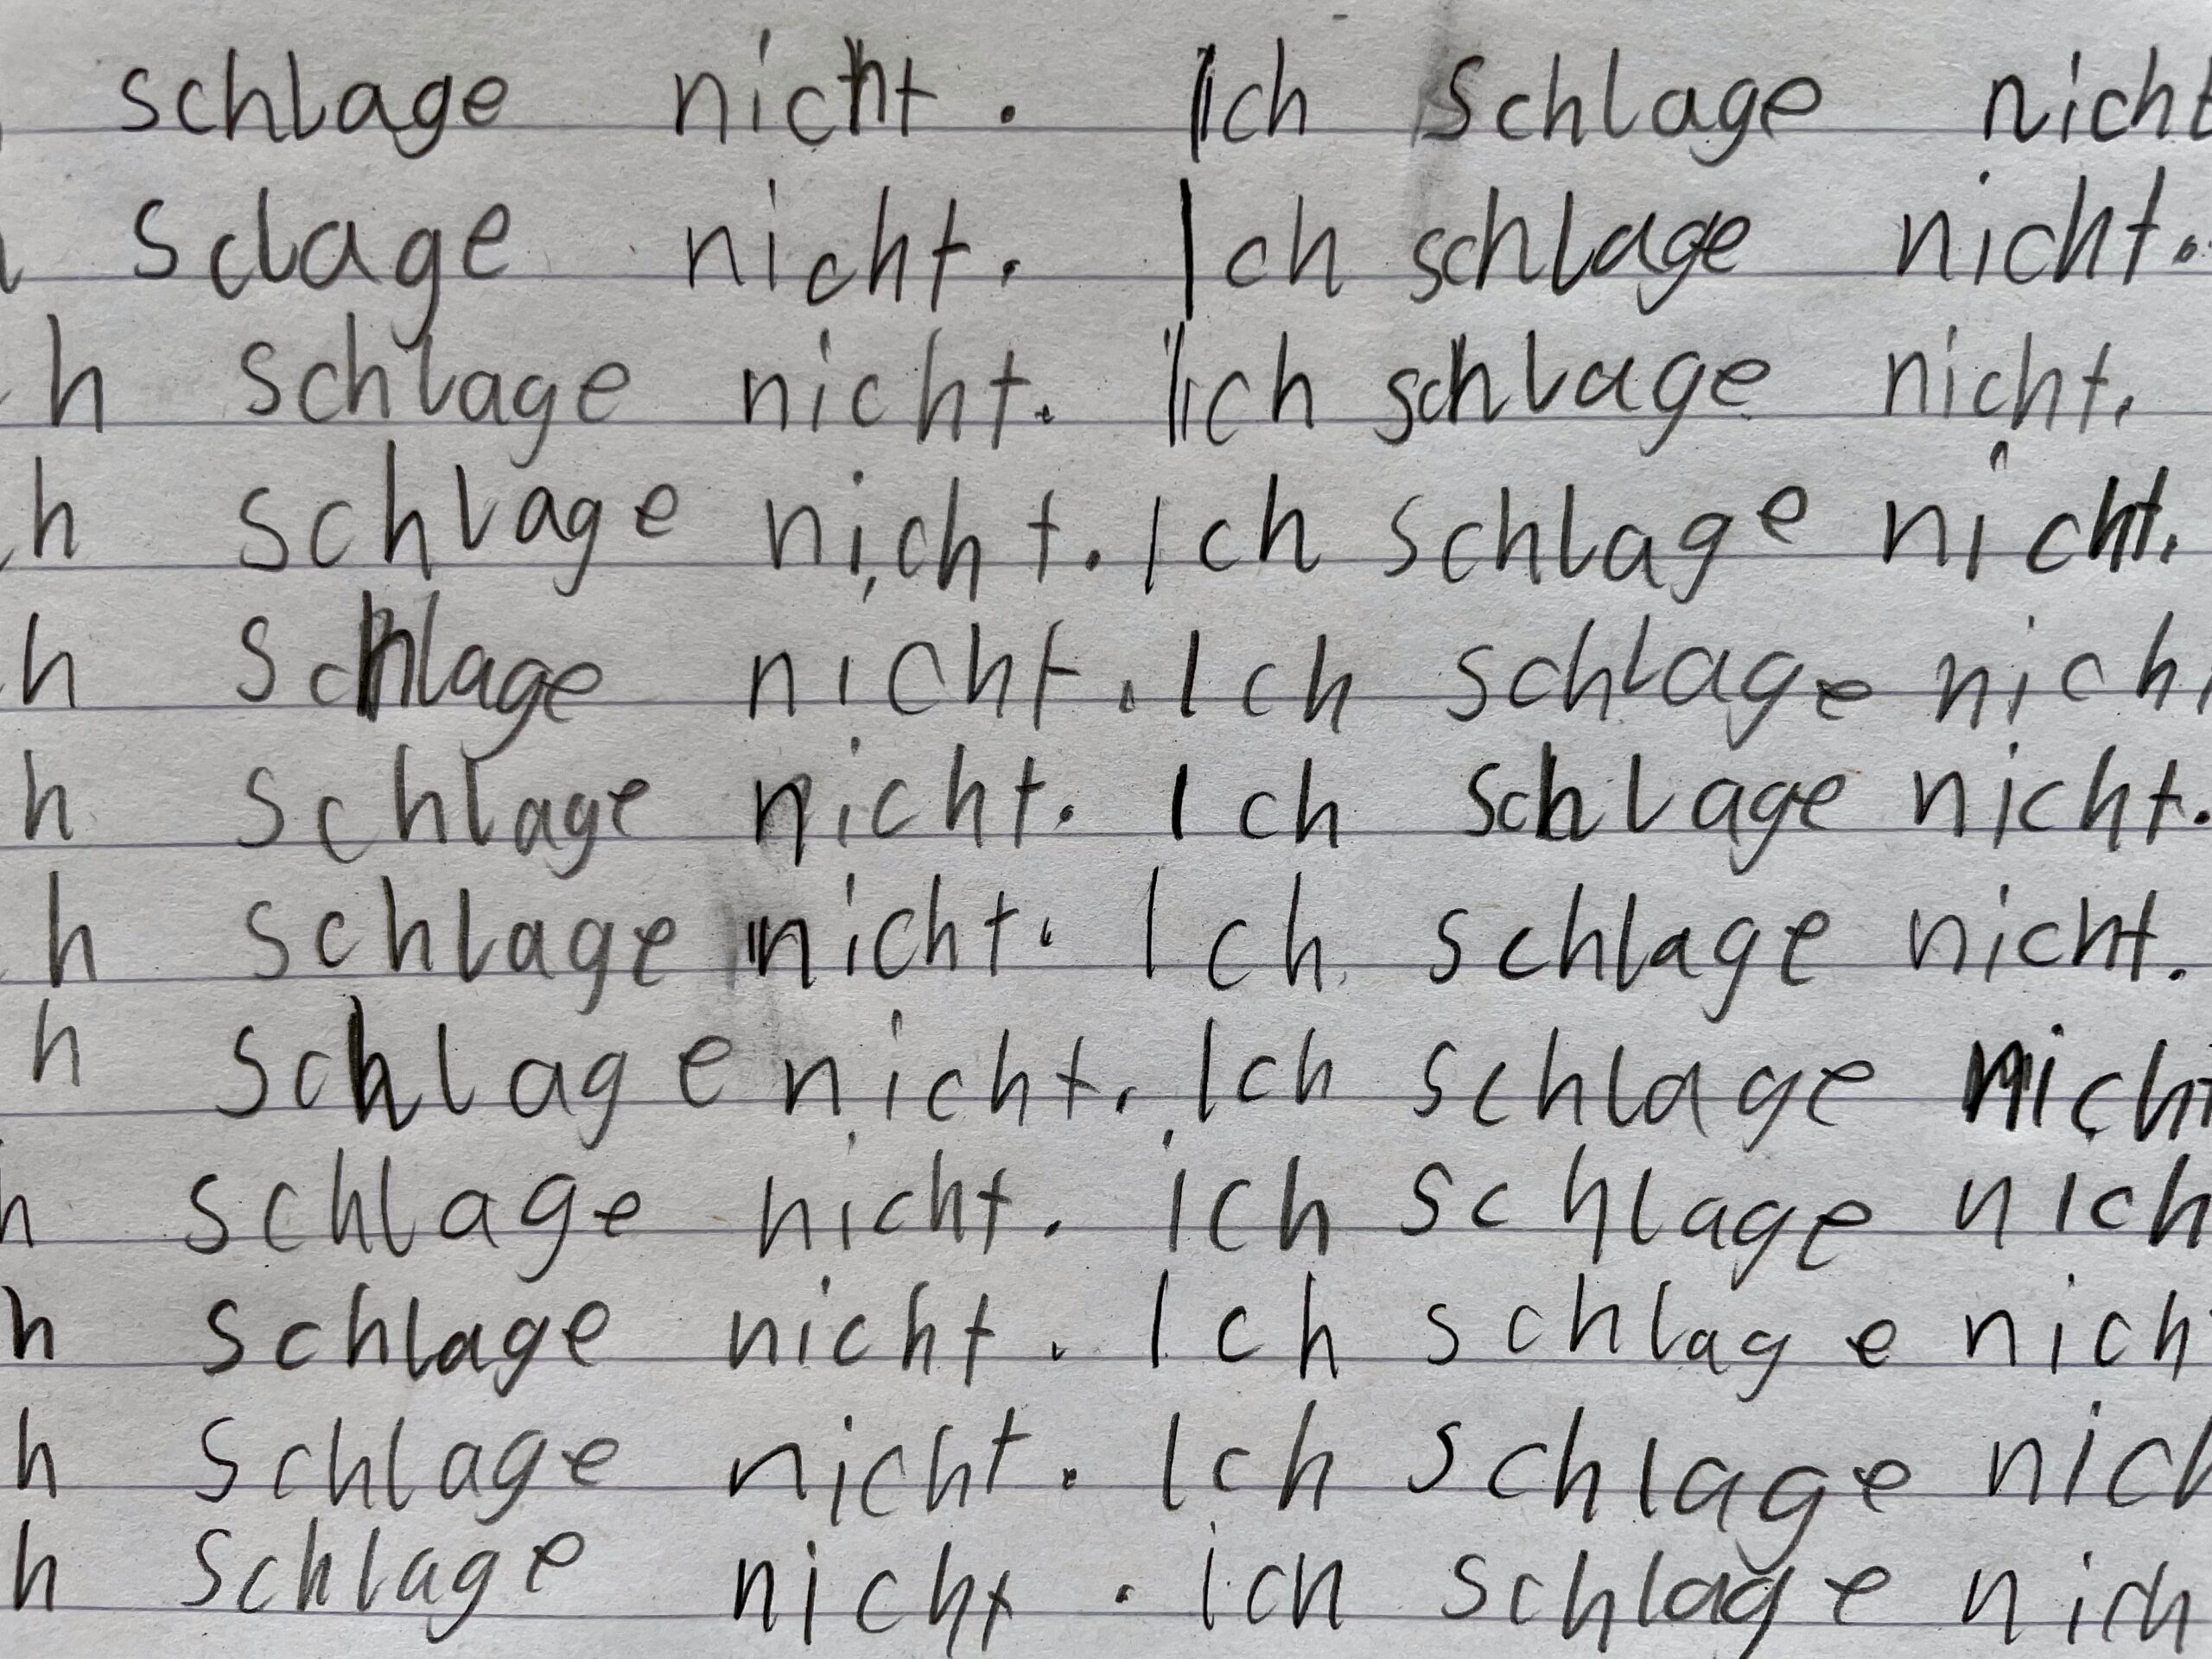 schlage nicht. Ich schlage nicht
sclage nicht. Ich schlage nicht.
h schlage nicht. Ich schlage nicht.
h schlage nicht. Ich schlage nicht.
h schlage nicht. Ich schlage nich
h schlage nicht. Ich schlage nicht.
h schlage nicht. Ich schlage nicht.
h schlage nicht. Ich schlage nicht
h schlage nicht. ich schlage nich
h schlage nicht. Ich schlage nich
h schlage nicht. Ich schlage nich
h schlage nicht. ich schlage nich